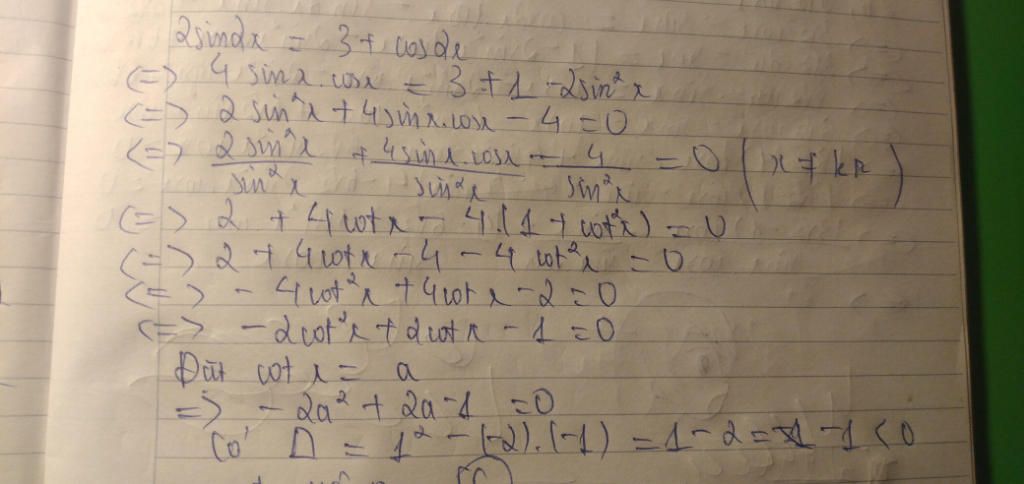 2sin2x = 3 + cos2x
<=> 4 sinx.cosx = 3 + 1 - 2sin²x
<=> 2 sin²x + 4sinx.cosx - 4 = 0
<=> 2 sin²x/sin²x + 4sinx.cosx/sin²x - 4/sin²x = 0 (x ≠ kπ)
<=> 2 + 4cotx - 4.(1 + cot²x) = 0
<=> 2 + 4cotx - 4 - 4 cot²x = 0
<=> - 4cot²x + 4cotx - 2 = 0
<=> - 2cot²x + 2cotx - 1 = 0
Đặt cotx = a
=> - 2a² + 2a - 1 = 0
Có Δ = 1² - (-2).(-1) = 1 - 2 = -1 < 0